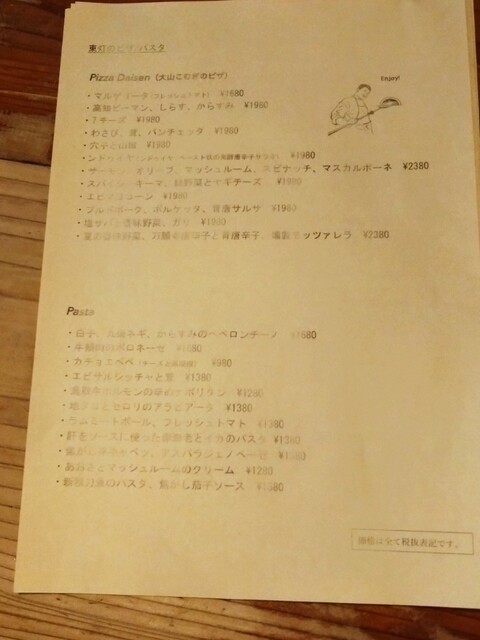 東灯のピザ/パスタ
Pizza Daisen (大山こむぎのピザ)
Enjoy!
・マルゲリータ(フレッシュトマト) ¥1680
・高知ピーマン、しらす、からすみ ¥1980
・7チーズ ¥1980
・わさび、茸、パンチェッタ ¥1980
・穴子と山椒 ¥1980
・ンドゥイヤ ¥1980
・サーモン、オリーブ、マッシュルーム、スピナッチ、マスカルポーネ ¥2380
・スパイシーキーマ、夏野菜とヤギチーズ ¥1980
・エビマヨコーン ¥1980
・プルドポーク、ポルケッタ、青唐サルサ ¥1980
・塩サバと香味野菜、ガリ ¥1980
・万願寺唐辛子と青唐辛子、燻製モッツァレラ ¥2380
Pasta
・茄子、九条ネギ、からすみのペペロンチーノ ¥1680
・牛頬肉のボロネーゼ ¥1680
・カチョエペペ ¥980
・エビサルシッチャと茸 ¥1380
・ホルモンの ナポリタン ¥1280
・地ダコとセロリのアラビアータ ¥1380
・ラムミートボール、フレッシュトマト ¥1380
・肝をソースに使った イカのパスタ ¥1380
・焦がし キャベツ、アスパラジェノベーゼ
・あおさとマッシュルームのクリーム ¥1280
・新秋刀魚のパスタ、焦がし茄子ソース ¥1380
価格は全て税抜表記です。